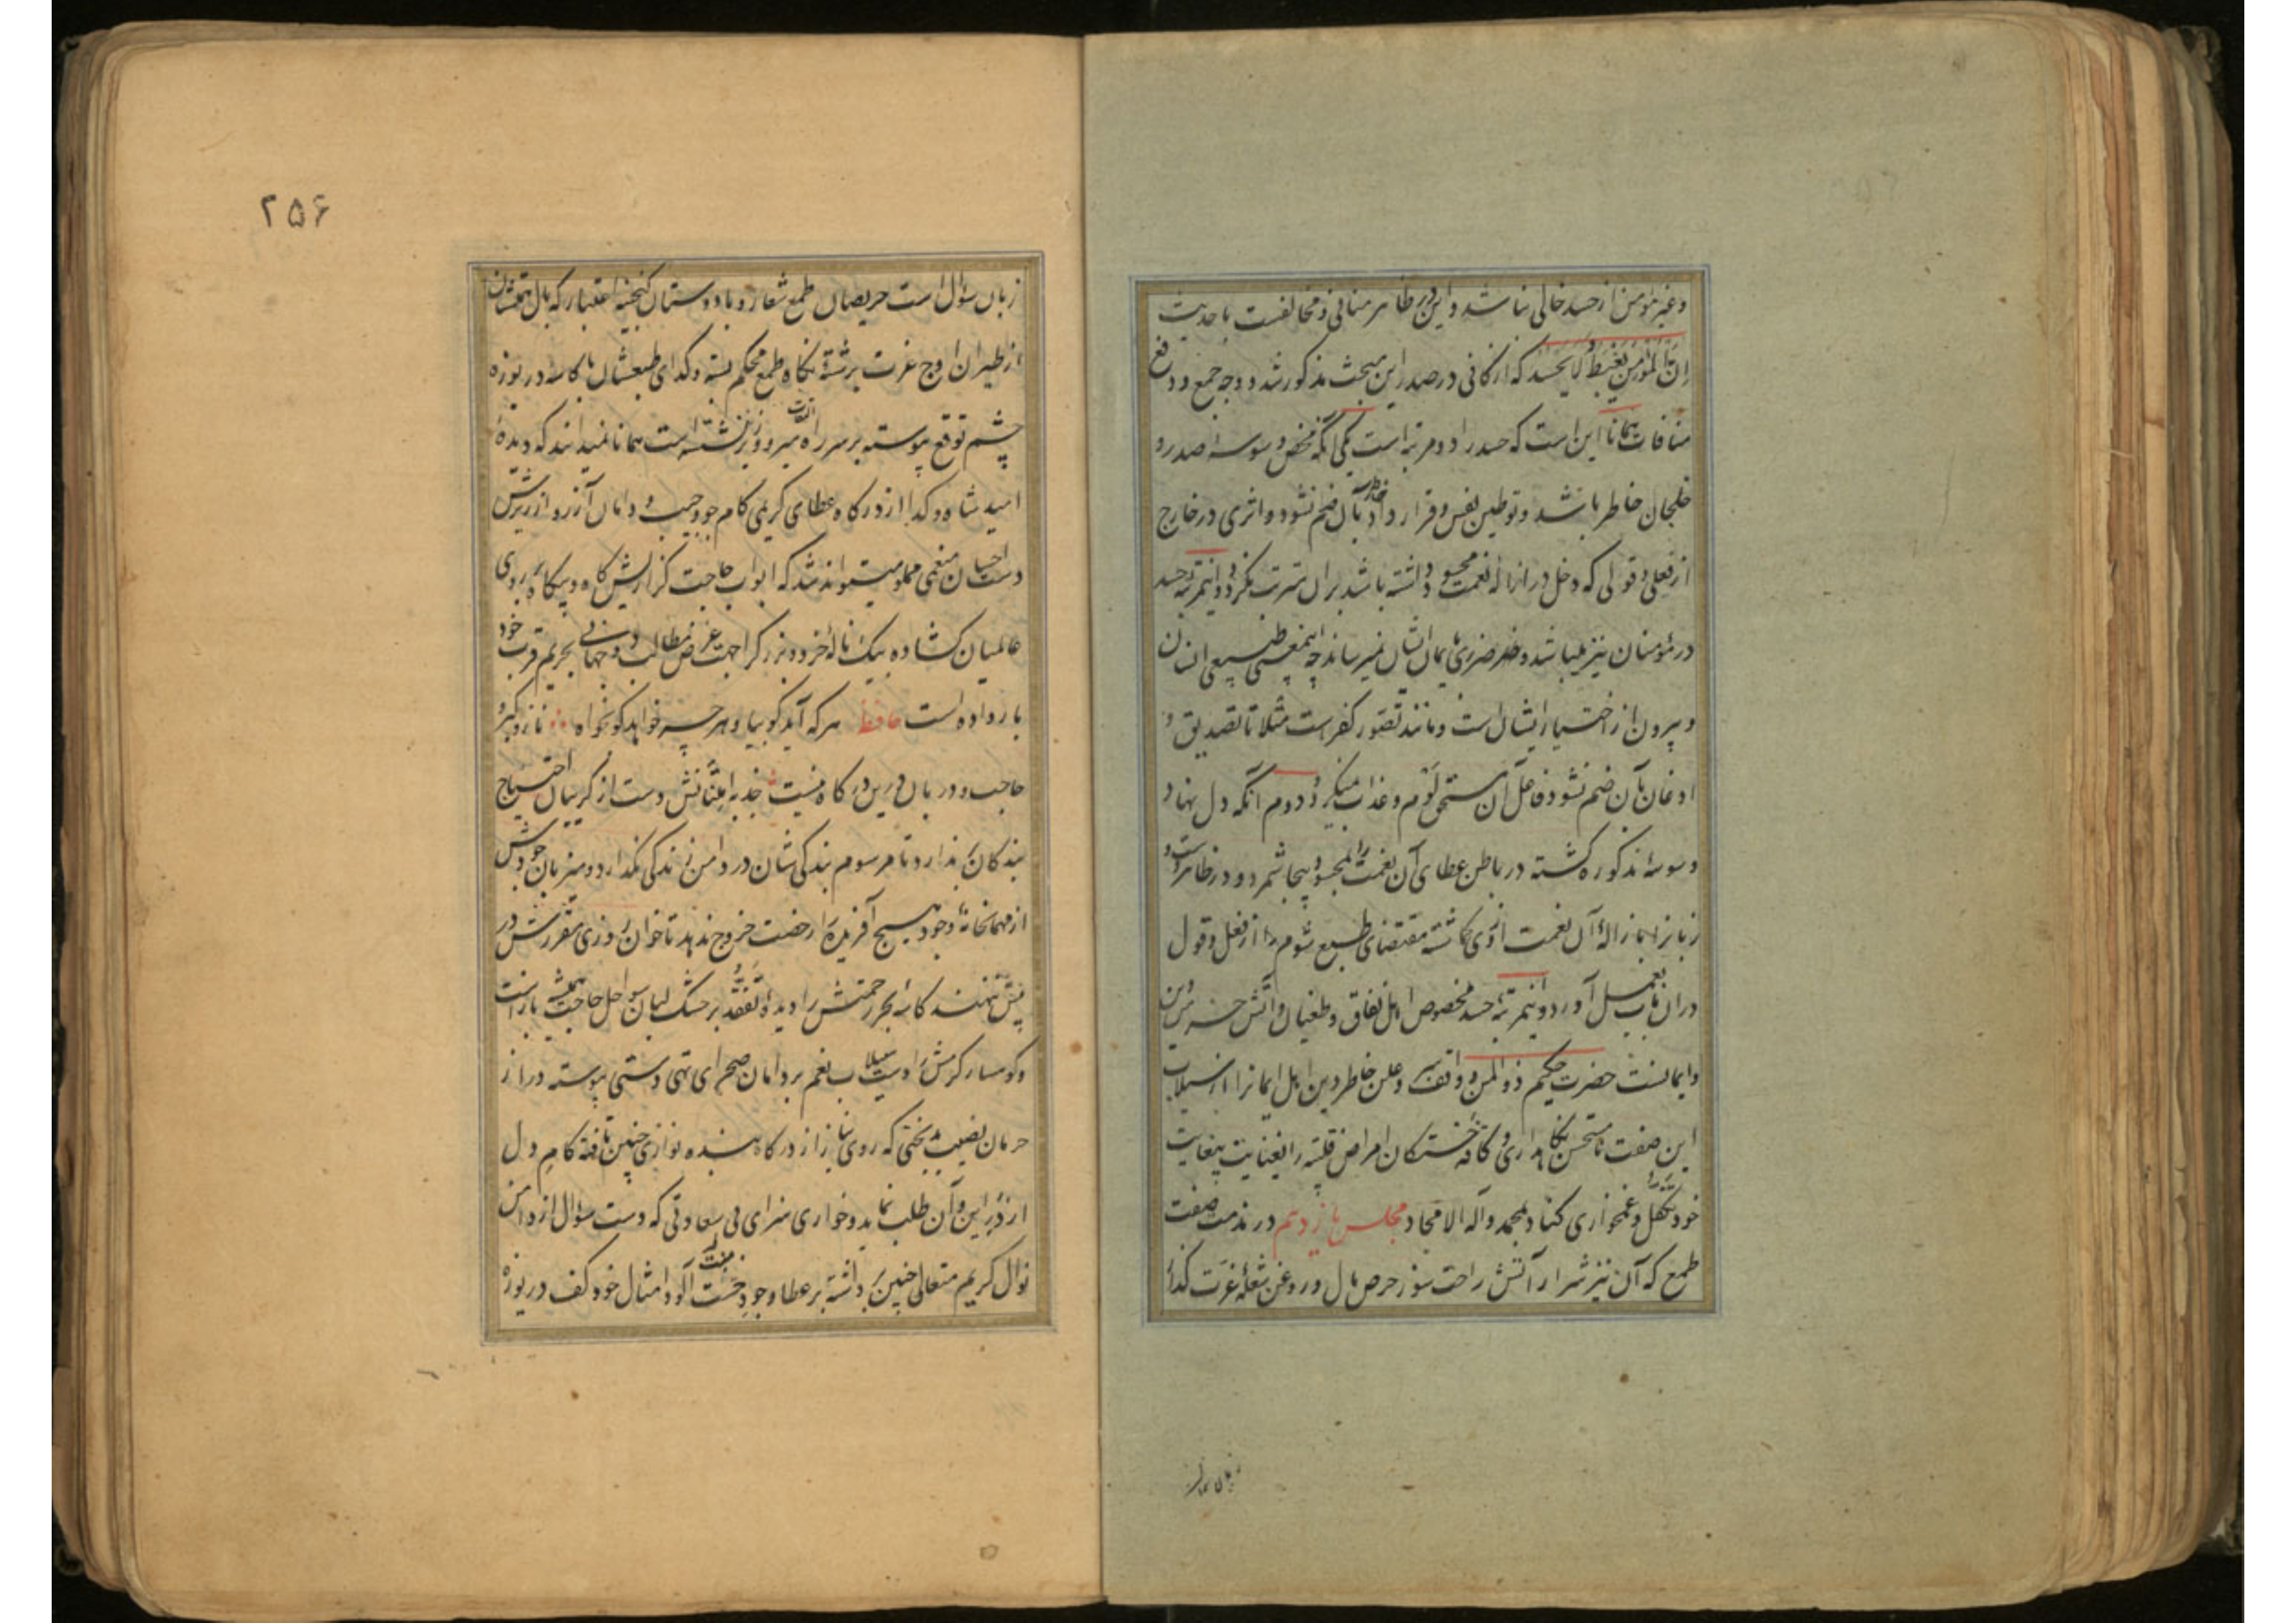 و غیر مؤمن از حسد خالی نباشد و این در ظاهر منافی و مخالفست با حدیث
إن المؤمن یغبط و لا یحسد که از کافی در صدر این مبحث مذکور شد و وجه جمع و دفع
منافات همانا این است که حسد را دو مرتبه است یکی آنکه محض وسوسهٔ صدر و
خلجان خاطر باشد و توطین نفس و قرارداد خاطر بآن ضم نشود و اثری در خارج
از فعلی و قولی که دخل در ازالهٔ نعمت محسود داشته باشد بر آن مترتب نگردد و اینمرتبهٔ حسد
در مؤمنان نیز میباشد و ضرری بایمان ایشان نمیرساند چه اینمعنی طبیعی انسان
و بیرون از اختیار ایشان است و مانند تصور کفر است مثلا تا تصدیق و
اذعان بآن ضم نشود فاعل آن مستحق لوم و عذاب نمیگردد دوم آنکه دل نهاد
وسوسهٔ مذکوره گشته در باطن عطای آن نعمت را بمحسود بیجا شمرد و در ظاهر دست و
زبانرا بازالهٔ آن نعمت ازوی گماشته مقتضای طبع شوم را از فعل و قول
در آن باب بعمل آورد و اینمرتبهٔ حسد مخصوص اهل نفاق و طغیان و آتش خرمن دین
و ایمانست حضرت حکیم ذو المنن و واقف سر و علن خاطر دین اهل ایمانرا از سیلاب
این صفت نامستحسن نگاهداری و کافهٔ خستگان امراض قلبیه را بعنایت بیغایت
خود تکفل و غمخواری کناد بمحمد و آله الامجاد مجلس یازدهم در مذمت صفت
طمع که آن نیز شرار آتش راحت سوز حرص مال و روغن شعلهٔ عزت گداز
زبان سؤال است
۲۵۶
زبان سؤال است حریصان طمع شعار و باد دستان گنجینهٔ اعتبار که بال همتشان
از طیران اوج عزت برشتهٔ نگاه طمع محکم بسته و گدای طبعشان با کاسهٔ دریوزه
چشم توقع پیوسته بر سر راه التفات میر و وزیر نشسته است همانا نمیدانند که دیدهٔ
امید شاه و گدا از درگاه عطای کریمی کام جو و جیب و دامان آرزو از ریزش
دست احسان منعمی مملو میتواند شد که ابواب حاجت گزاریش گاه و بیگاه بر روی
عالمیان گشاده بیک ناله خرد و بزرگ را جهت عرض مطالب دو جهانی بحریم قرب خود
بار داده است حافظ هر که آید گو بیا و هر چه خواهد گو بخواه ∴ ناز و کبر و
حاجب و دربان درین درگاه نیست جذبهٔ امتنانش دست از گریبان احتیاج
بندگان ندارد تا مرسوم بندگی شان در دامن زندگی نگذارد و میزبان جودش
از مهمانخانهٔ وجود هیچ آفریدهٔ را رخصت خروج ندهد تا خوان روزی مقررش در
پیش ننهند کاسهٔ بحر رحمتش را دیدهٔ تفقد بر خشک لبان سواحل حاجت همیشه باز است
و کوهسار کرمش را دست سیلاب نعم بر دامان صحرای تهی دستی پیوسته دراز
حرمان نصیب بدبختی که روی نیاز از درگاه بنده نوازی چنین تافته کام دل
از در این و آن طلب نماید و خواری سزای بی سعادتی که دست سؤال از دامن
نوال کریم متعالی چنین برداشته بر عطا و جود خست آلود امثال خود کف دریوزه